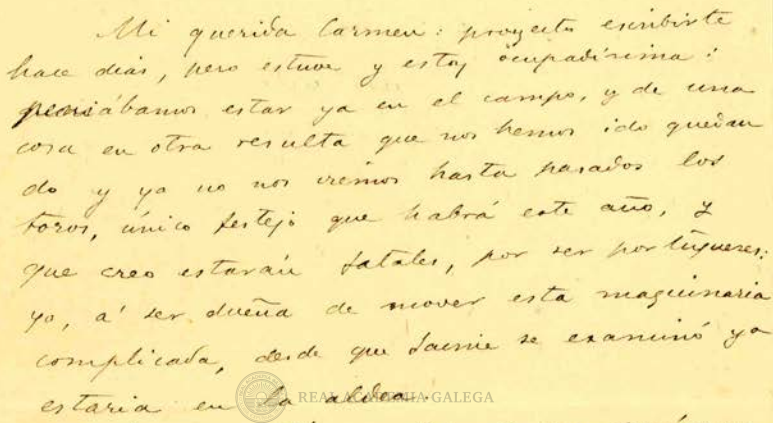 Mi querida Carmen: proyecto escribirte
hace dias, pero estuve y estoy ocupadísima:
pensábamos estar ya en el campo, y de una
cosa en otra resulta que nos hemos ido quedan
do y ya no nos iremos hasta pasados los
toros, único festejo que habrá este año, y
que creo estarán fatales, por ser portugueses:
yo, á ser dueña de mover esta maquinaria
complicada, desde que Jaime se examinó ya
estaria en la aldea.
REAL ACADEMIA GALEGA